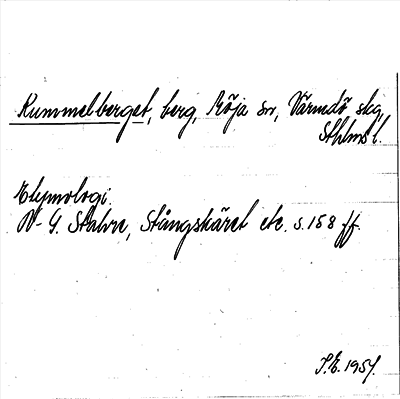 Kummelberget, berg, Möja sn, Värmdö skg,
Sthlms l.
Etymologi.
N-G. Stahre, Stångskäret etc. s. 158 ff.
S.E. 1957.